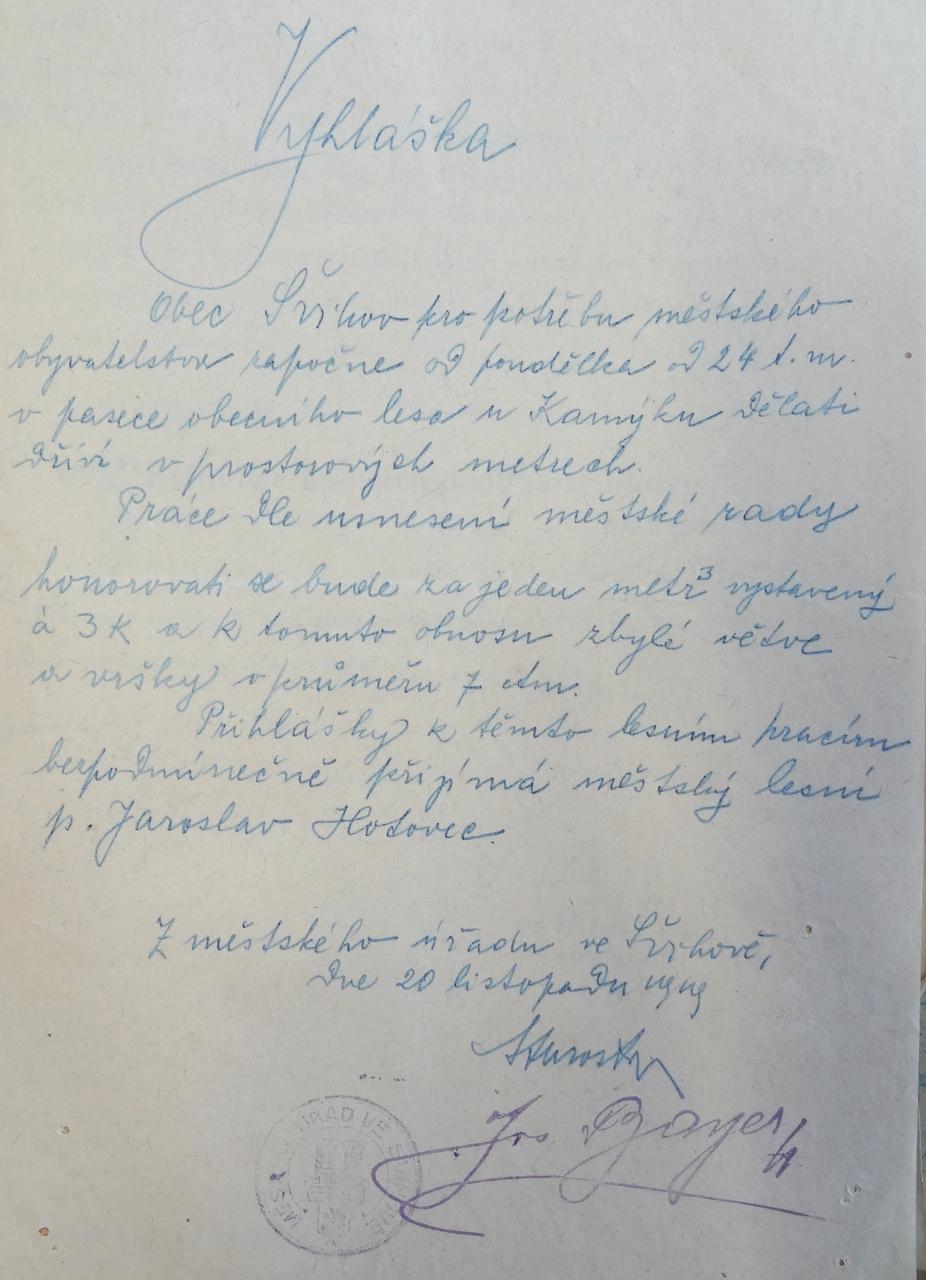 Vyhláška
Obec Švihov pro potřebu městského
obyvatelstva započne od pondělka od 24 t. m.
v pasece obecního lesa u Kamýku dělati
dříví v prostorových metrech.
Práce dle usnesení městské rady
honorovati se bude za jeden metr³ vystavený
à 3 K a k tomuto obnosu zbylé větve
a vršky v průměru 7 ctm.
Přihlášky k těmto lesním pracím
bezpodmínečně přijímá městský lesní
p. Jaroslav Hotovec.
Z městského úřadu ve Švihově,
dne 20 listopadu 1919
Starosta
Jos Bayer
MĚSTSKÝ ÚŘAD VE ŠVIHOVĚ